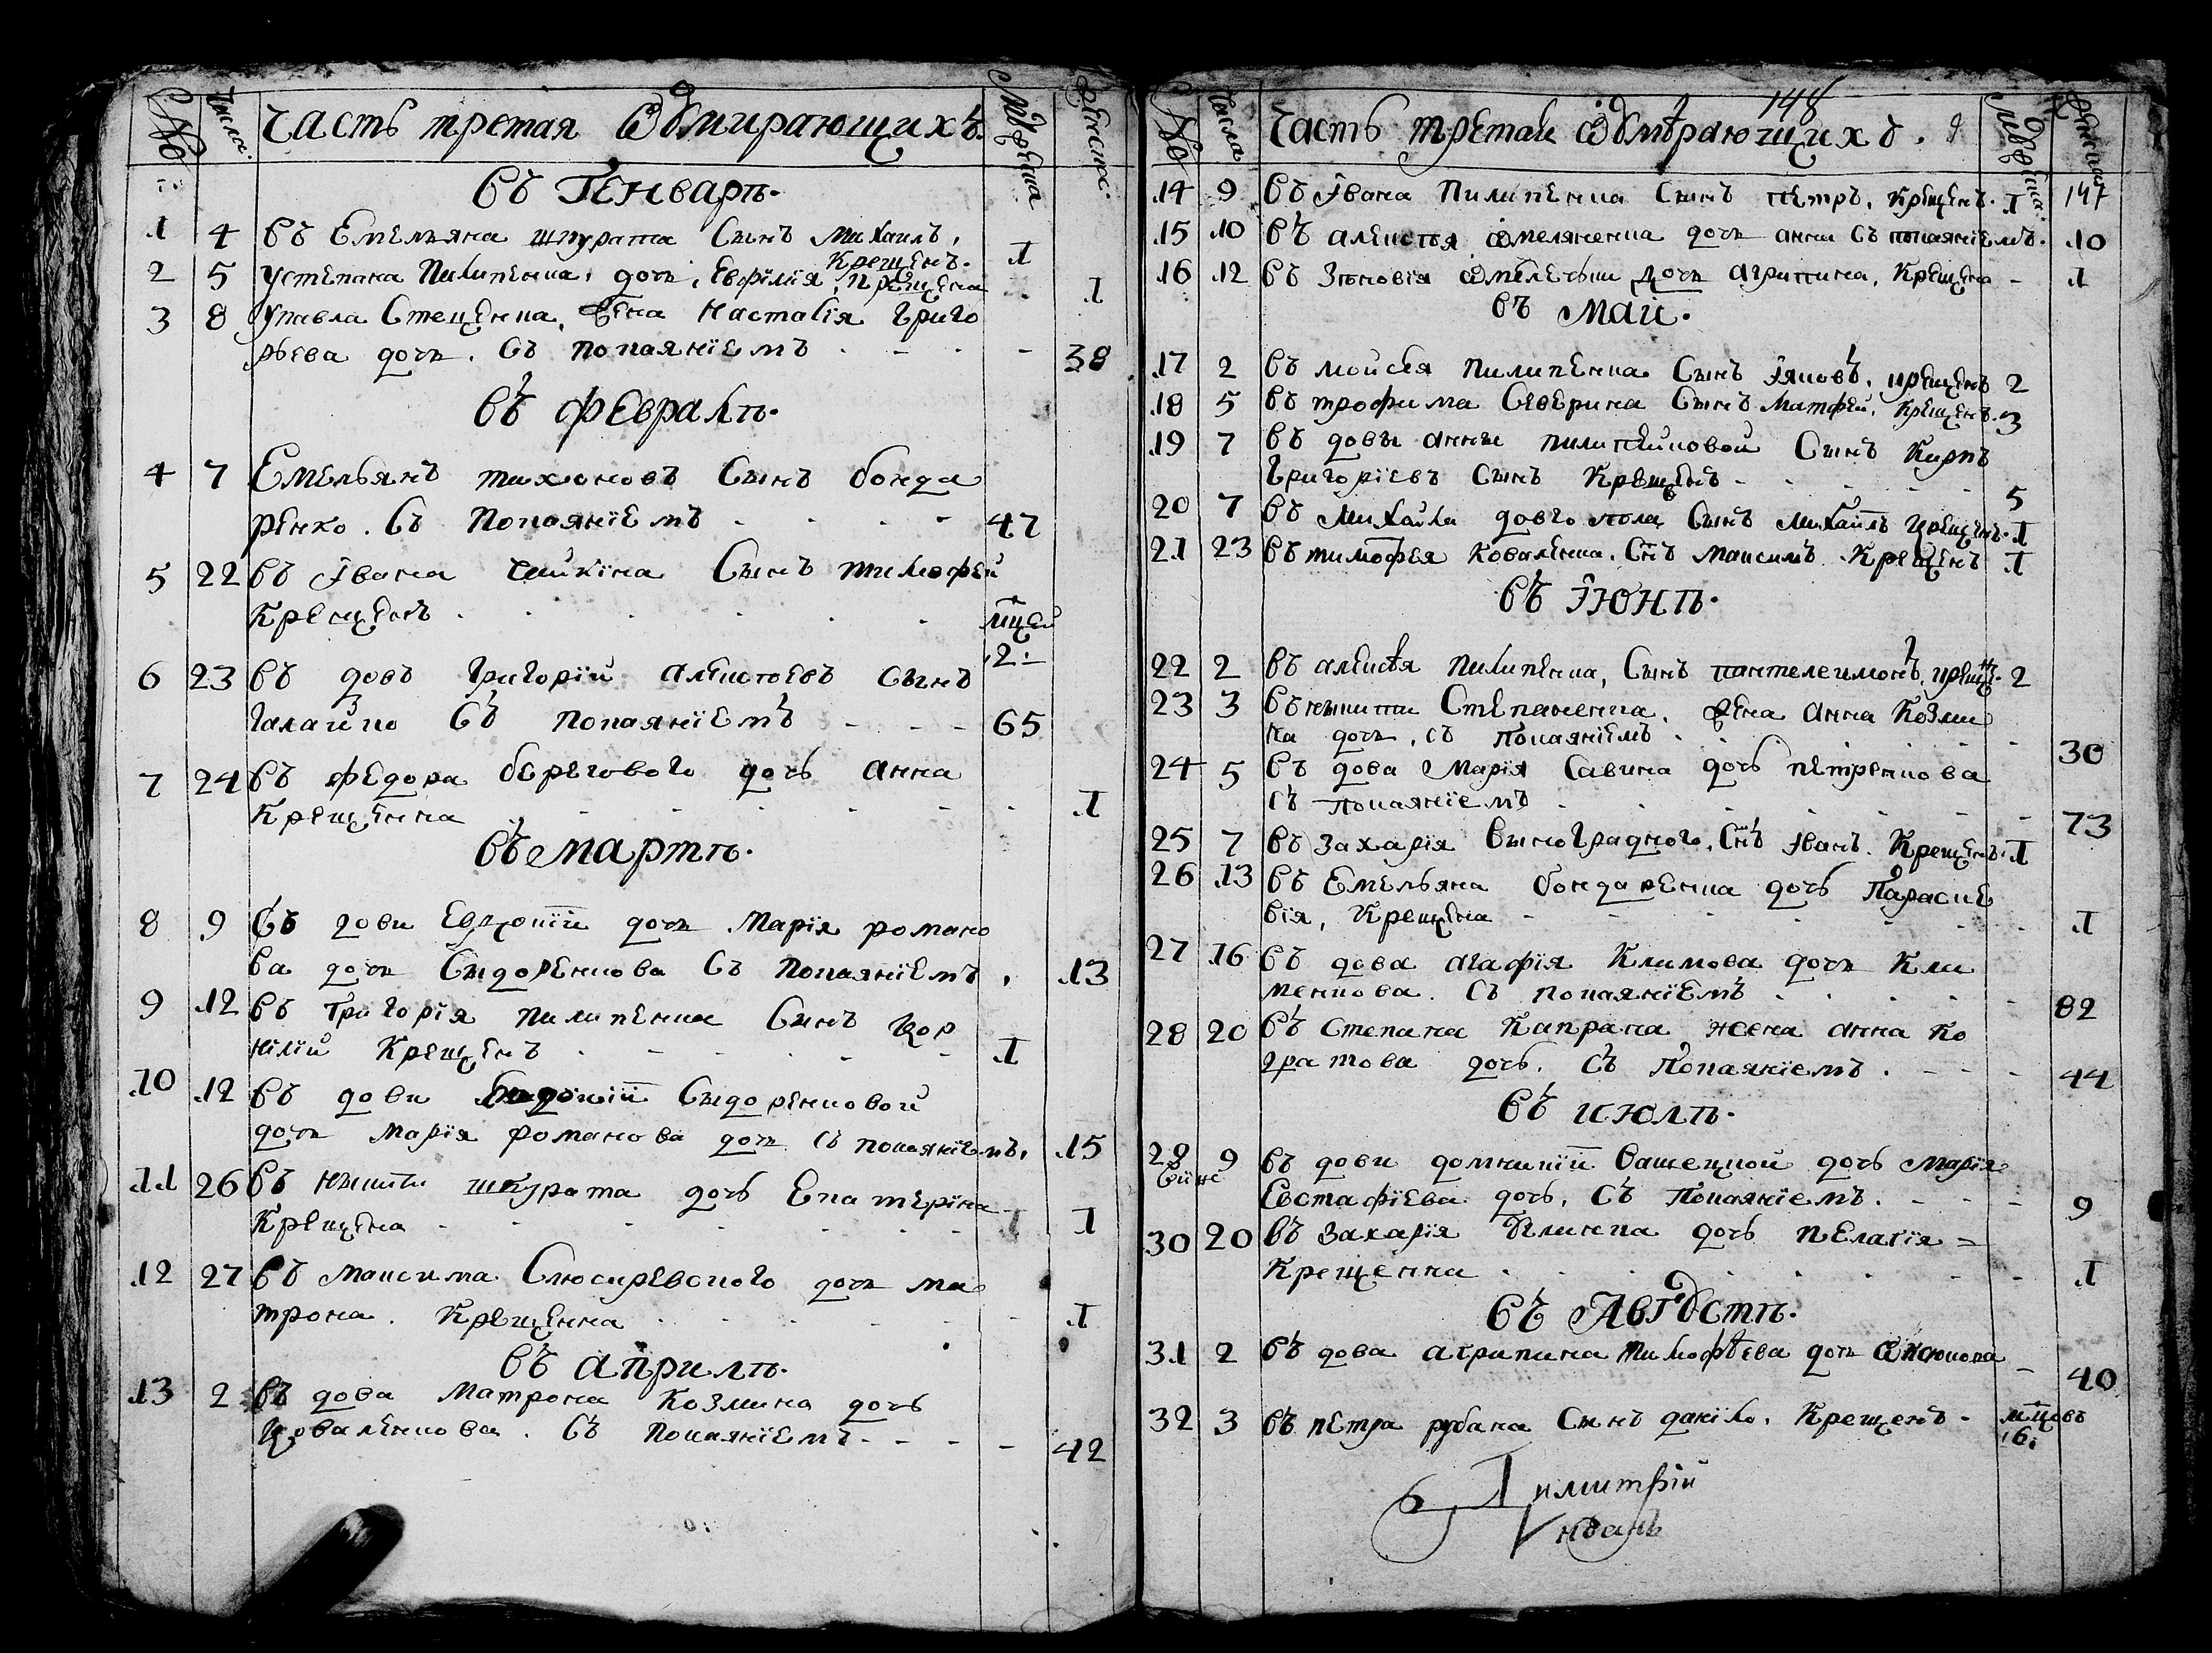 № Числа. Часть третая Ѡ умирающихъ. Мужеска Женска.
Въ Генварѣ.
1 4 Въ Емельяна шкурата Сынъ Михаилъ,
Крещенъ. 1
2 5 У степана Пилипенка, дочь, Евфимія, крещена 1
3 8 У павла Стеценка, Жена Настасія Григо
рьева дочь. Съ покаянїемъ - 38
Въ Февралѣ.
4 7 Емельянъ тихоновъ Сынъ бонда
ренко. Съ Покаянїемъ 47
5 22 Въ Ивана Сынъ тимофей
Крещенъ мцей
2:
6 23 въ довъ Григорїй алексеевъ Сынъ
галайко Съ покаянїемъ - - - 65
7 24 Въ Федора берегового дочь Анна
Крещенна 1
Въ Мартѣ.
8 9 Въ дови Евдокїи дочь Марїя романо
ва дочь Сидоренкова Съ Покаянїемъ, 13
9 12 Въ Григорїя пилипенка Сынъ кор
нїлїй Крещенъ 1
10 12 Въ дови Евдокїи Сидоренковой
дочь Марїя романова дочь Съ покаянїемъ, 15
11 26 Въ никити шкурата дочь Екатерїна
Крещена - 1
12 27 Въ Максима Слюсаревского дочь ма
трона. Крещенна 1
Въ априлѣ.
13 2 Въ дова Матрона Козмина дочь
коваленкова. Съ Покаянїемъ - - - - 42
148
№ Числа Часть третая Ѡ умѣрающихъ. Мужеска. Женская
14 9 Въ Ивана Пилипенка Сынъ петръ, Крещенъ. 1 147
15 10 Въ алексѣя Омеляненка дочь анна Съ покаянїемъ. 10
16 12 Въ Зѣновїя дочь агрипина, Крещена - 1
Въ Маїи.
17 2 Въ мойсея Пилипенка Сынъ Іяковъ, крещенъ 2
18 5 Въ трофима Северина Сынъ Матфей, Крещенъ. 3
19 7 Въ довы анны пилипейковой Сынъ Карпъ
Григорїевъ Сынъ Крещенъ - 5
20 7 Въ Михайла Сынъ Михаилъ крещенъ. 1
21 23 Въ тимофея Коваленка. Снъ Максимъ. Крещенъ 1
Въ Іюнѣ.
22 2 Въ алексѣя Пилипенка, Сынъ пантелеимонъ, крещнъ. 2
23 3 Въ никити Степаненка. Жена Анна Козми
на дочь, съ покаянїемъ - 30
24 5 Въ дова Марїя Савина дочь петренкова
съ покаянїемъ - 73
25 7 Въ Захарїя Виноградного. Снъ Иванъ. Крещенъ. 1
26 13 Въ Емельяна бондаренка дочь Параске
вїя, Крещена - 1
27 16 Въ дова агафїя Климова дочь Кли
менкова. Съ покаянїемъ 82
28 20 Въ Степана Капрана жена Анна Ко
дратова дочь. Съ Покаянїемъ. - - - 44
Въ Июлѣ.
29 9 Въ дови домникїи дочь Марїя
Евстафїева дочь, Съ Покаянїемъ. - - - 9
30 20 Въ Захарїя дочь пелагїя =
Крещенна 1
Въ Августѣ.
31 2 Въ дова агрипина тимофѣева дочь - 40
32 3 Въ петра рубана Сынъ данїло. Крещенъ - мцовъ
6:
Димитрїй